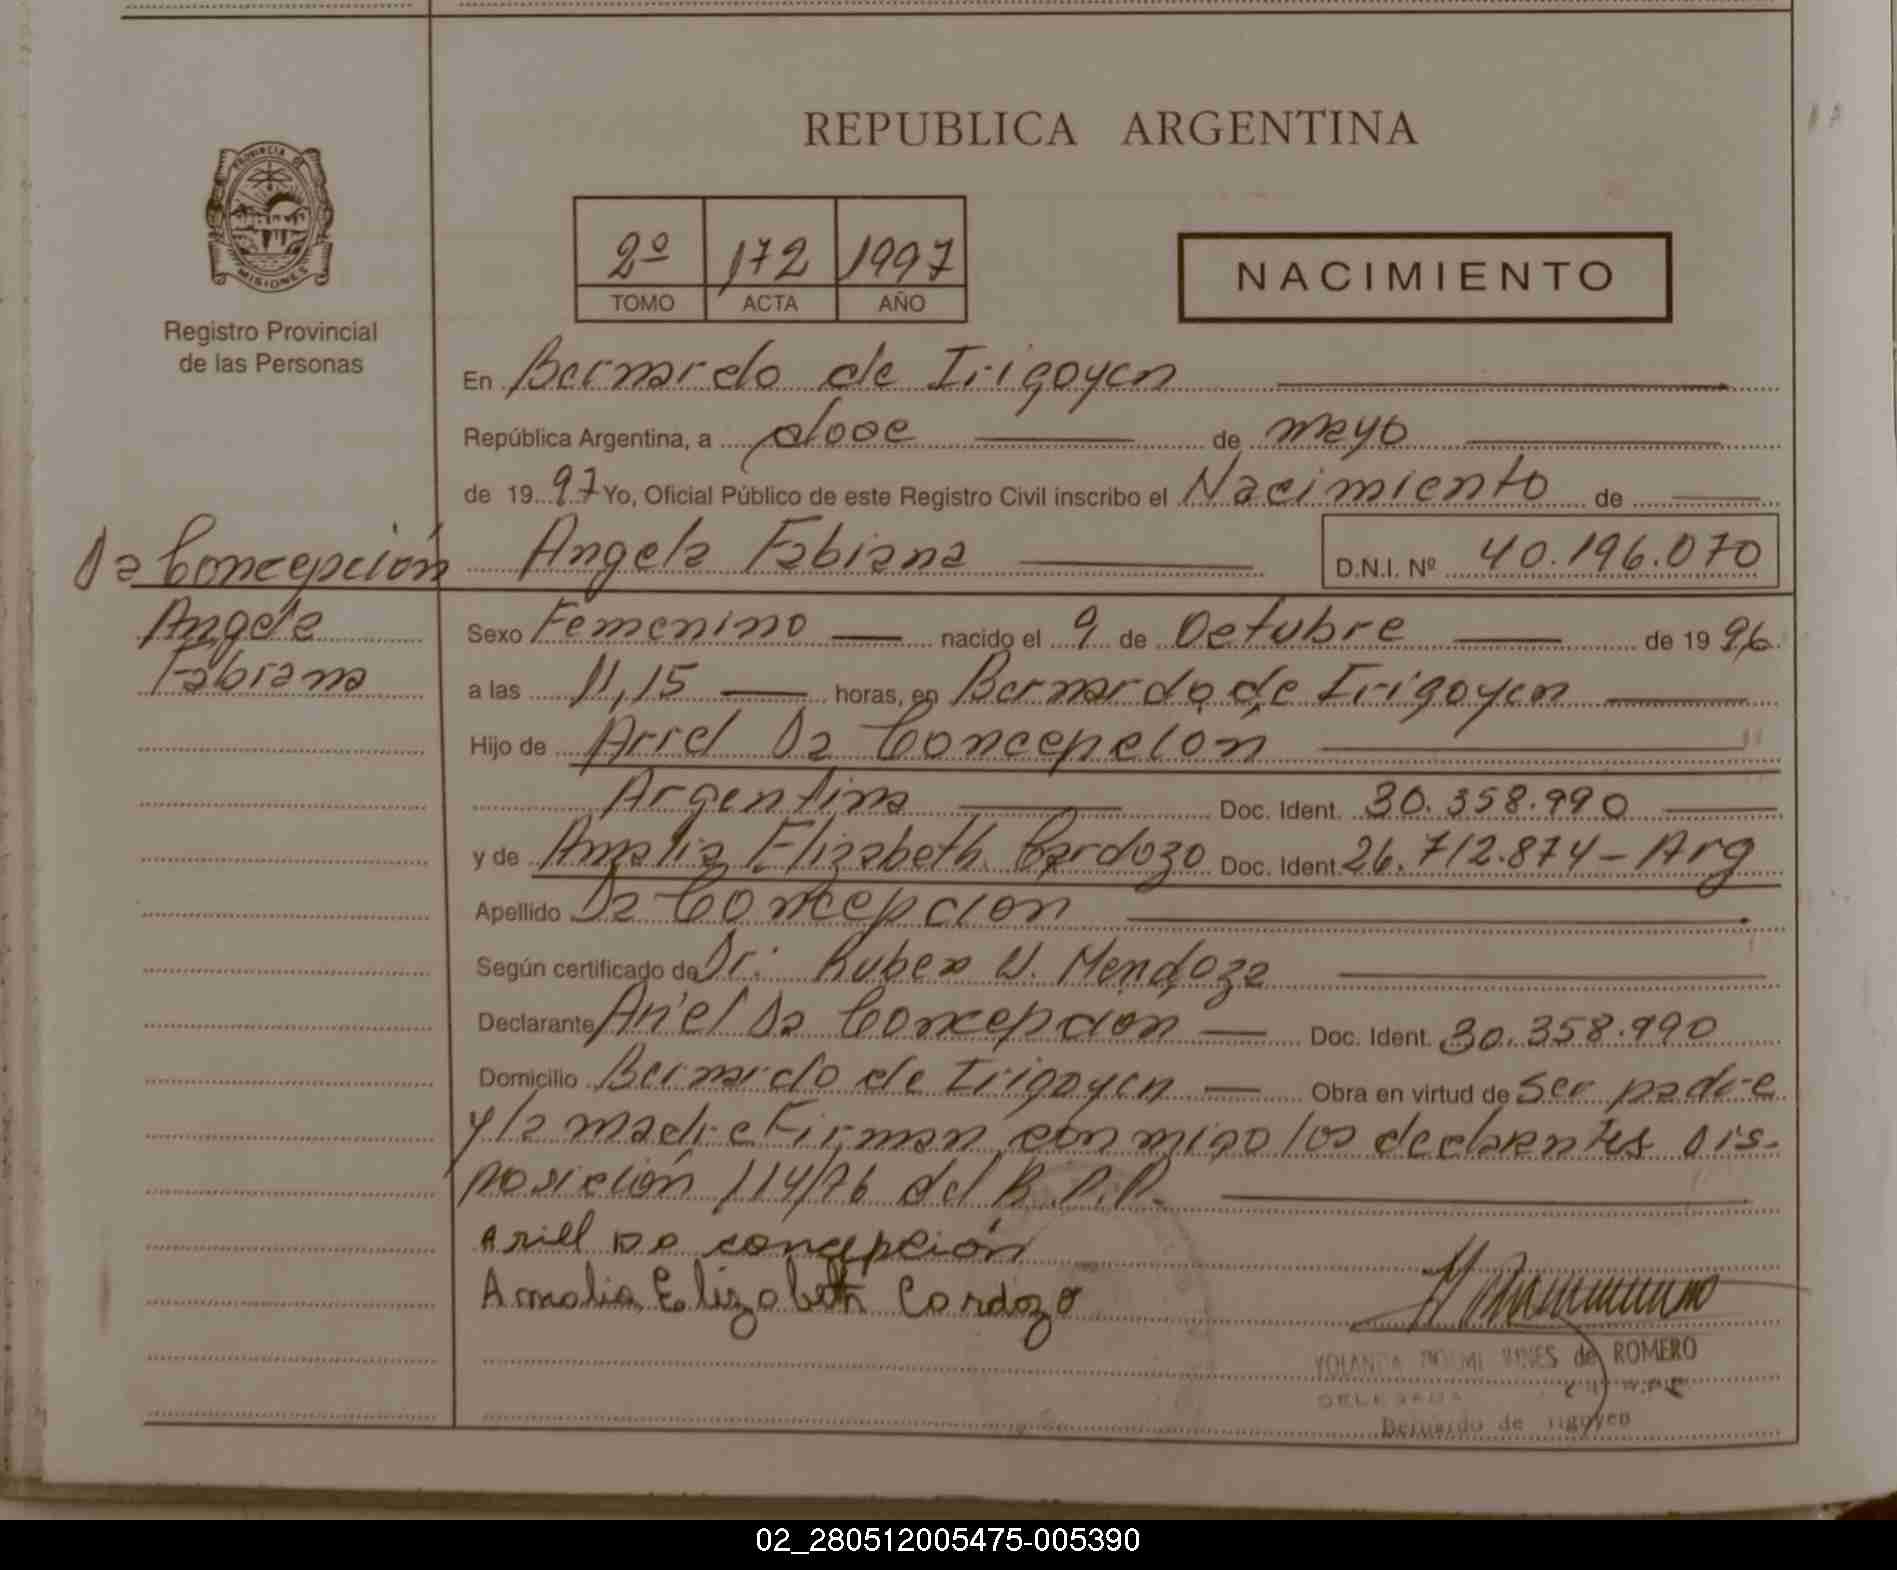 REPUBLICA ARGENTINA
PROVINCIA DE
MISIONES
Registro Provincial
de las Personas
2º 172 1997
TOMO ACTA AÑO
NACIMIENTO
En Bernardo de Irigoyen
República Argentina, a doce de mayo
de 1997 Yo, Oficial Público de este Registro Civil inscribo el Nacimiento de
Da Concepción Angela Fabiana D.N.I. Nº 40.196.070
Angela
Fabiana
Sexo Femenino nacido el 9 de Octubre de 1996
a las 11,15 horas, en Bernardo de Irigoyen
Hijo de Ariel Da Concepción
Argentina Doc. Ident. 30.358.990
y de Amalia Elizabeth Cardozo Doc. Ident. 26.712.874 - Arg
Apellido Da Concepcion
Según certificado de Dr. Ruben W. Mendoza
Declarante Ariel Da Concepcion Doc. Ident. 30.358.990
Domicilio Bernardo de Irigoyen Obra en virtud de ser padre
y la madre Firman conmigo los declarantes Dis-
posición 114/76 del R.P.P.
Ariel Da concepción
Amalia Elizabeth Cardozo
YOLANDA de ROMERO
DELEGADA
Bernardo de Irigoyen
02_280512005475-005390